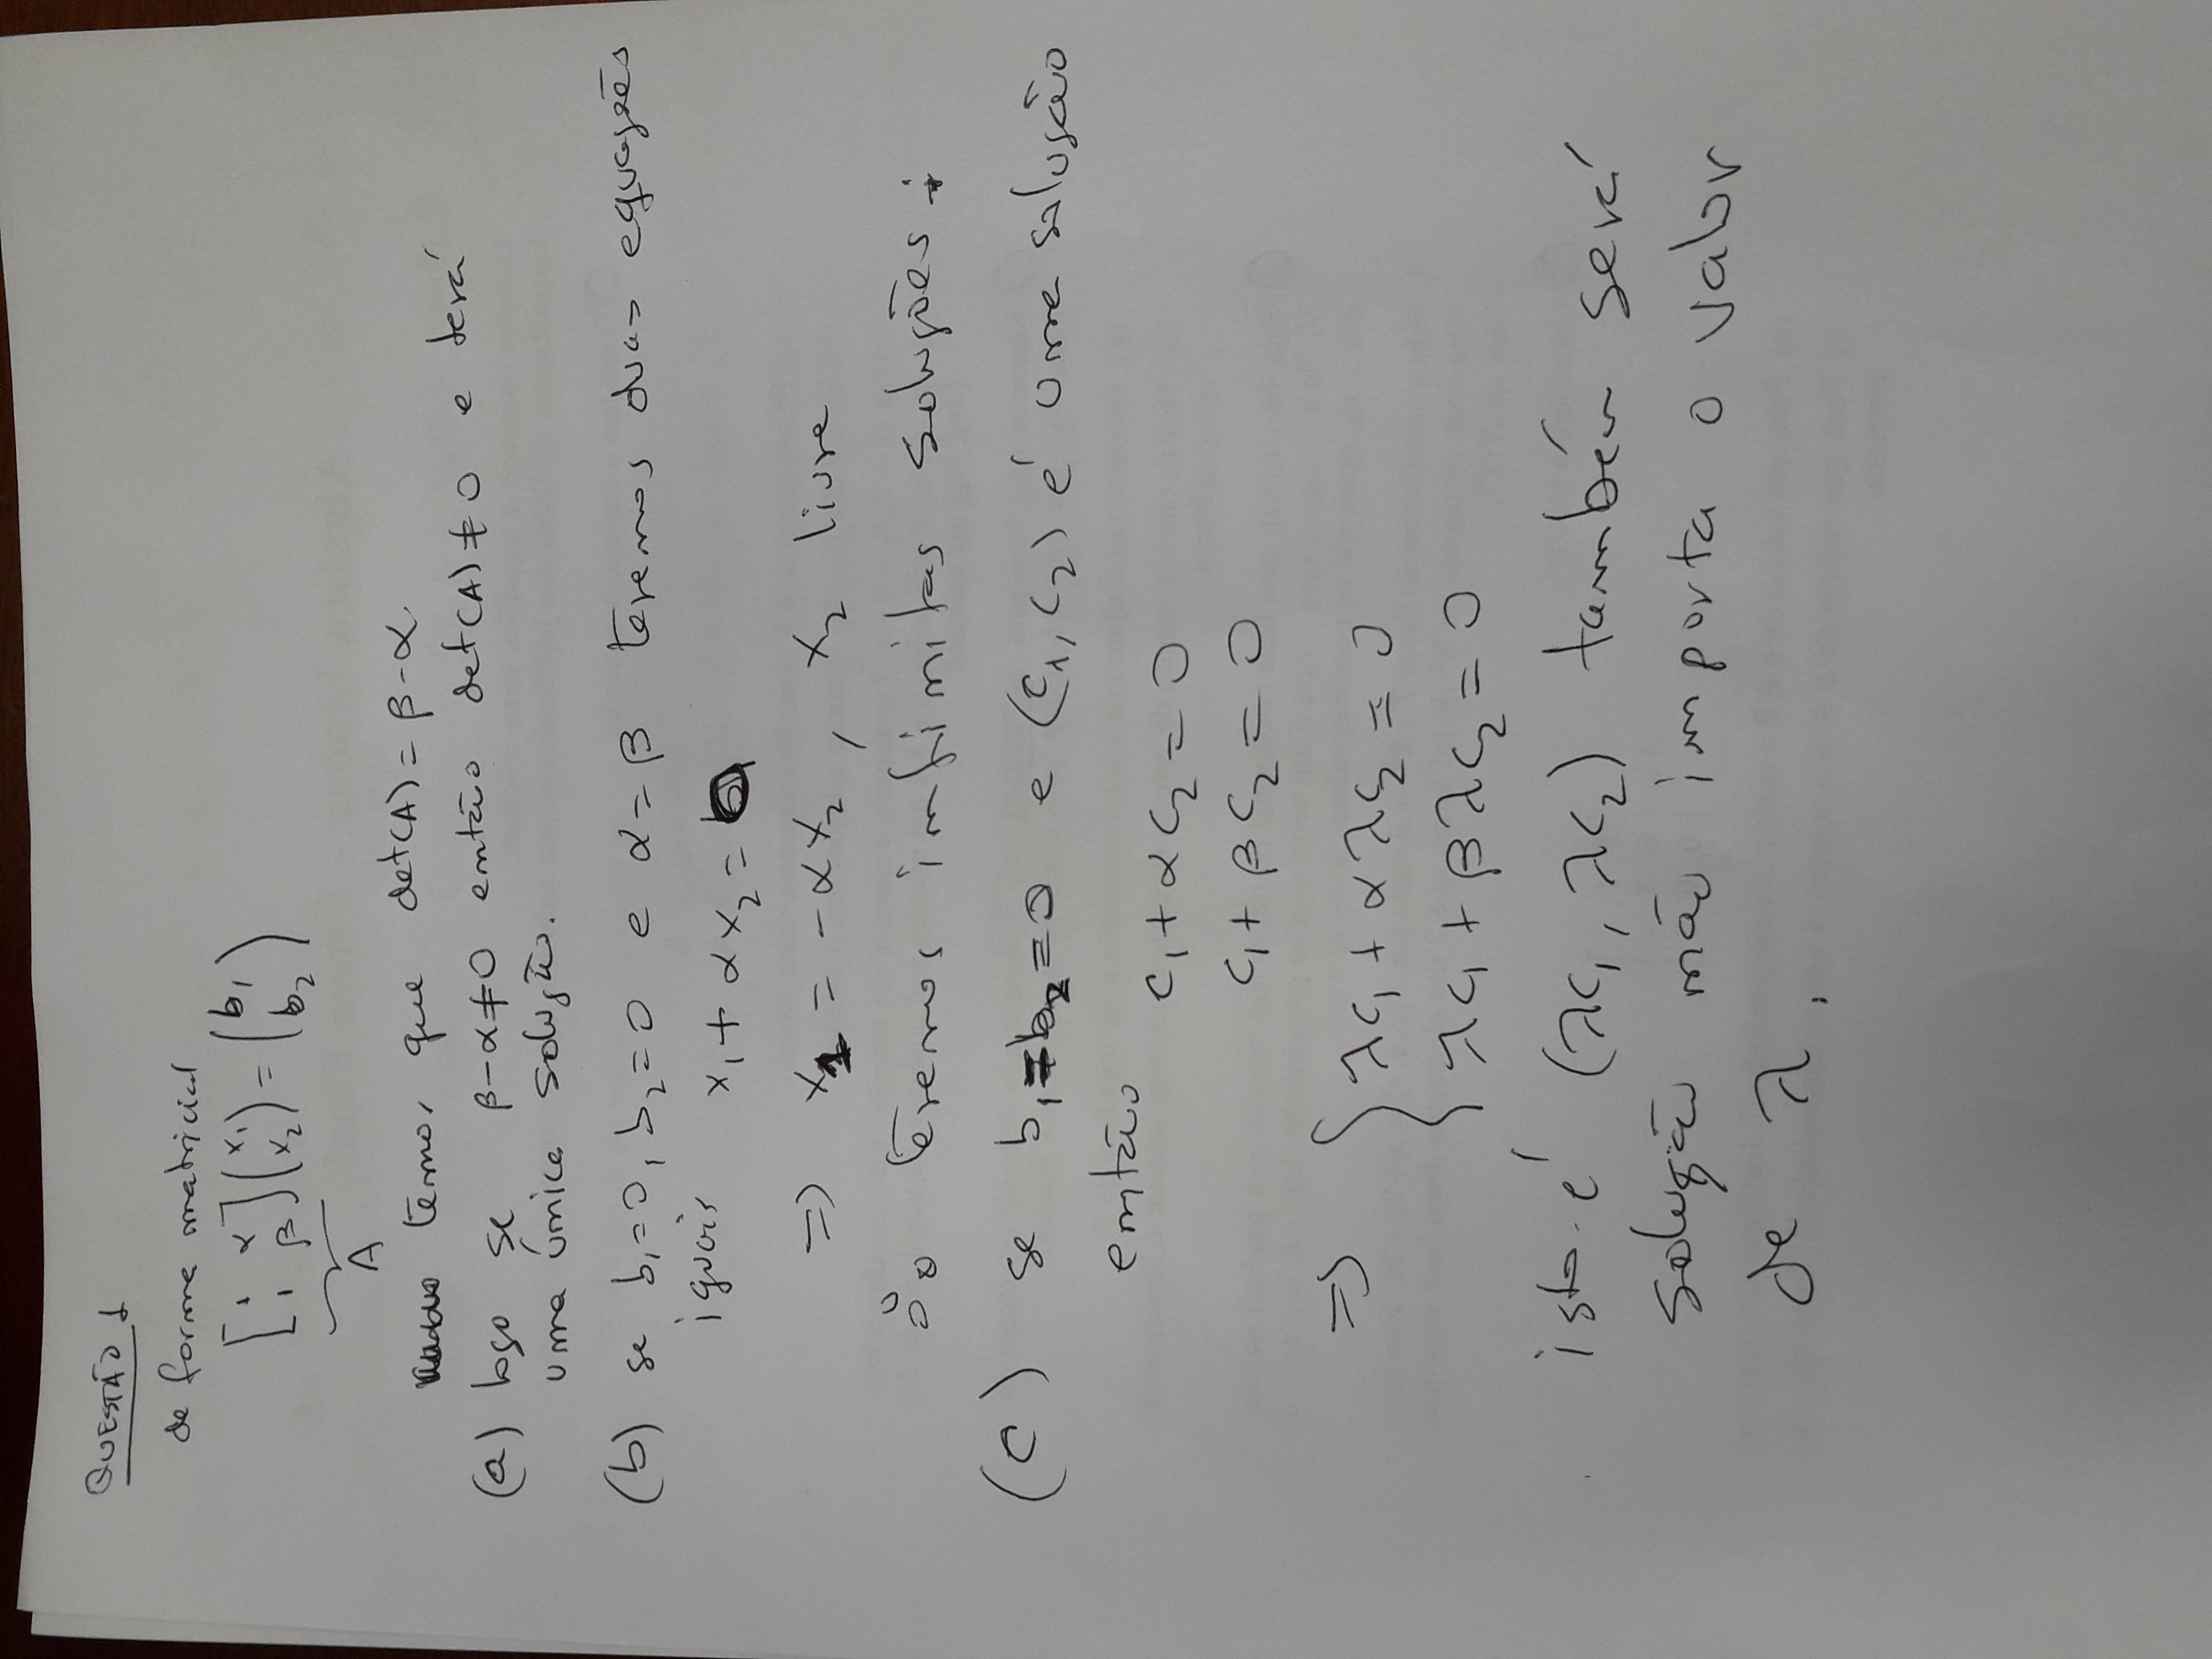 QUESTÃO 1
de forma matricial
[1 α; 1 β] (x1; x2) = (b1; b2)
A
temos que det(A) = β - α
(a) logo se β - α ≠ 0 então det(A) ≠ 0 e terá
uma única solução.
(b) se b1 = 0, b2 = 0 e α = β teremos duas equações
iguais x1 + α x2 = 0
⇒ x1 = - α x2, x2 livre
∴ teremos infinitas soluções.
(c) se b1 = b2 = 0 e (c1, c2) é uma solução
então
c1 + α c2 = 0
c1 + β c2 = 0
⇒ { λ c1 + α λ c2 = 0
λ c1 + β λ c2 = 0
isto é (λ c1, λ c2) também será
solução não importa o valor
de λ.